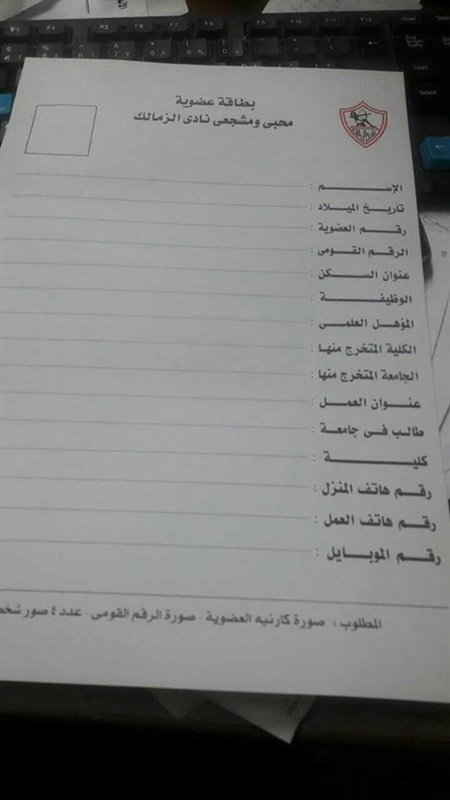 بطاقة عضوية
محبى ومشجعى نادى الزمالك
الإسم :
تاريخ الميلاد :
رقم العضوية :
الرقم القومى :
عنوان السكن :
الوظيفة :
المؤهل العلمى :
الكلية المتخرج منها :
الجامعة المتخرج منها :
عنوان العمل :
طالب فى جامعة :
كلية :
رقم هاتف المنزل :
رقم هاتف العمل :
رقم الموبايل :
المطلوب : صورة كارنيه العضوية - صورة الرقم القومى - عدد ٤ صور